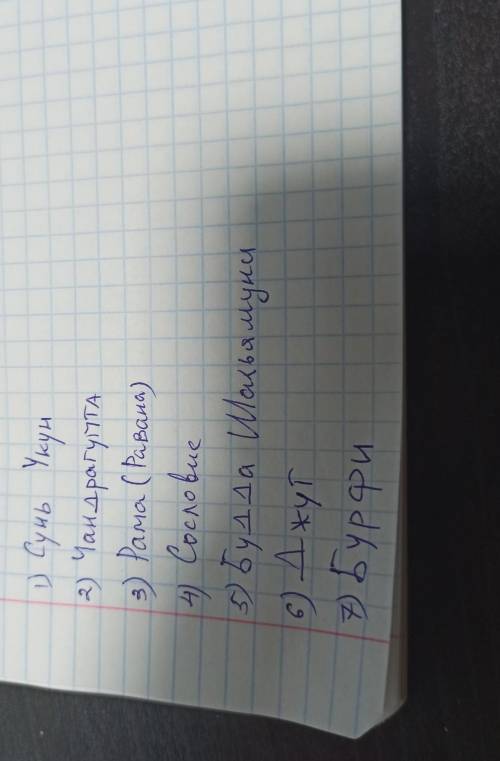 1) Сунь Укун
2) Чандрагупта
3) Рама (Равана)
4) Сословие
5) Будда Шакьямуни
6) Джут
7) Бурфи